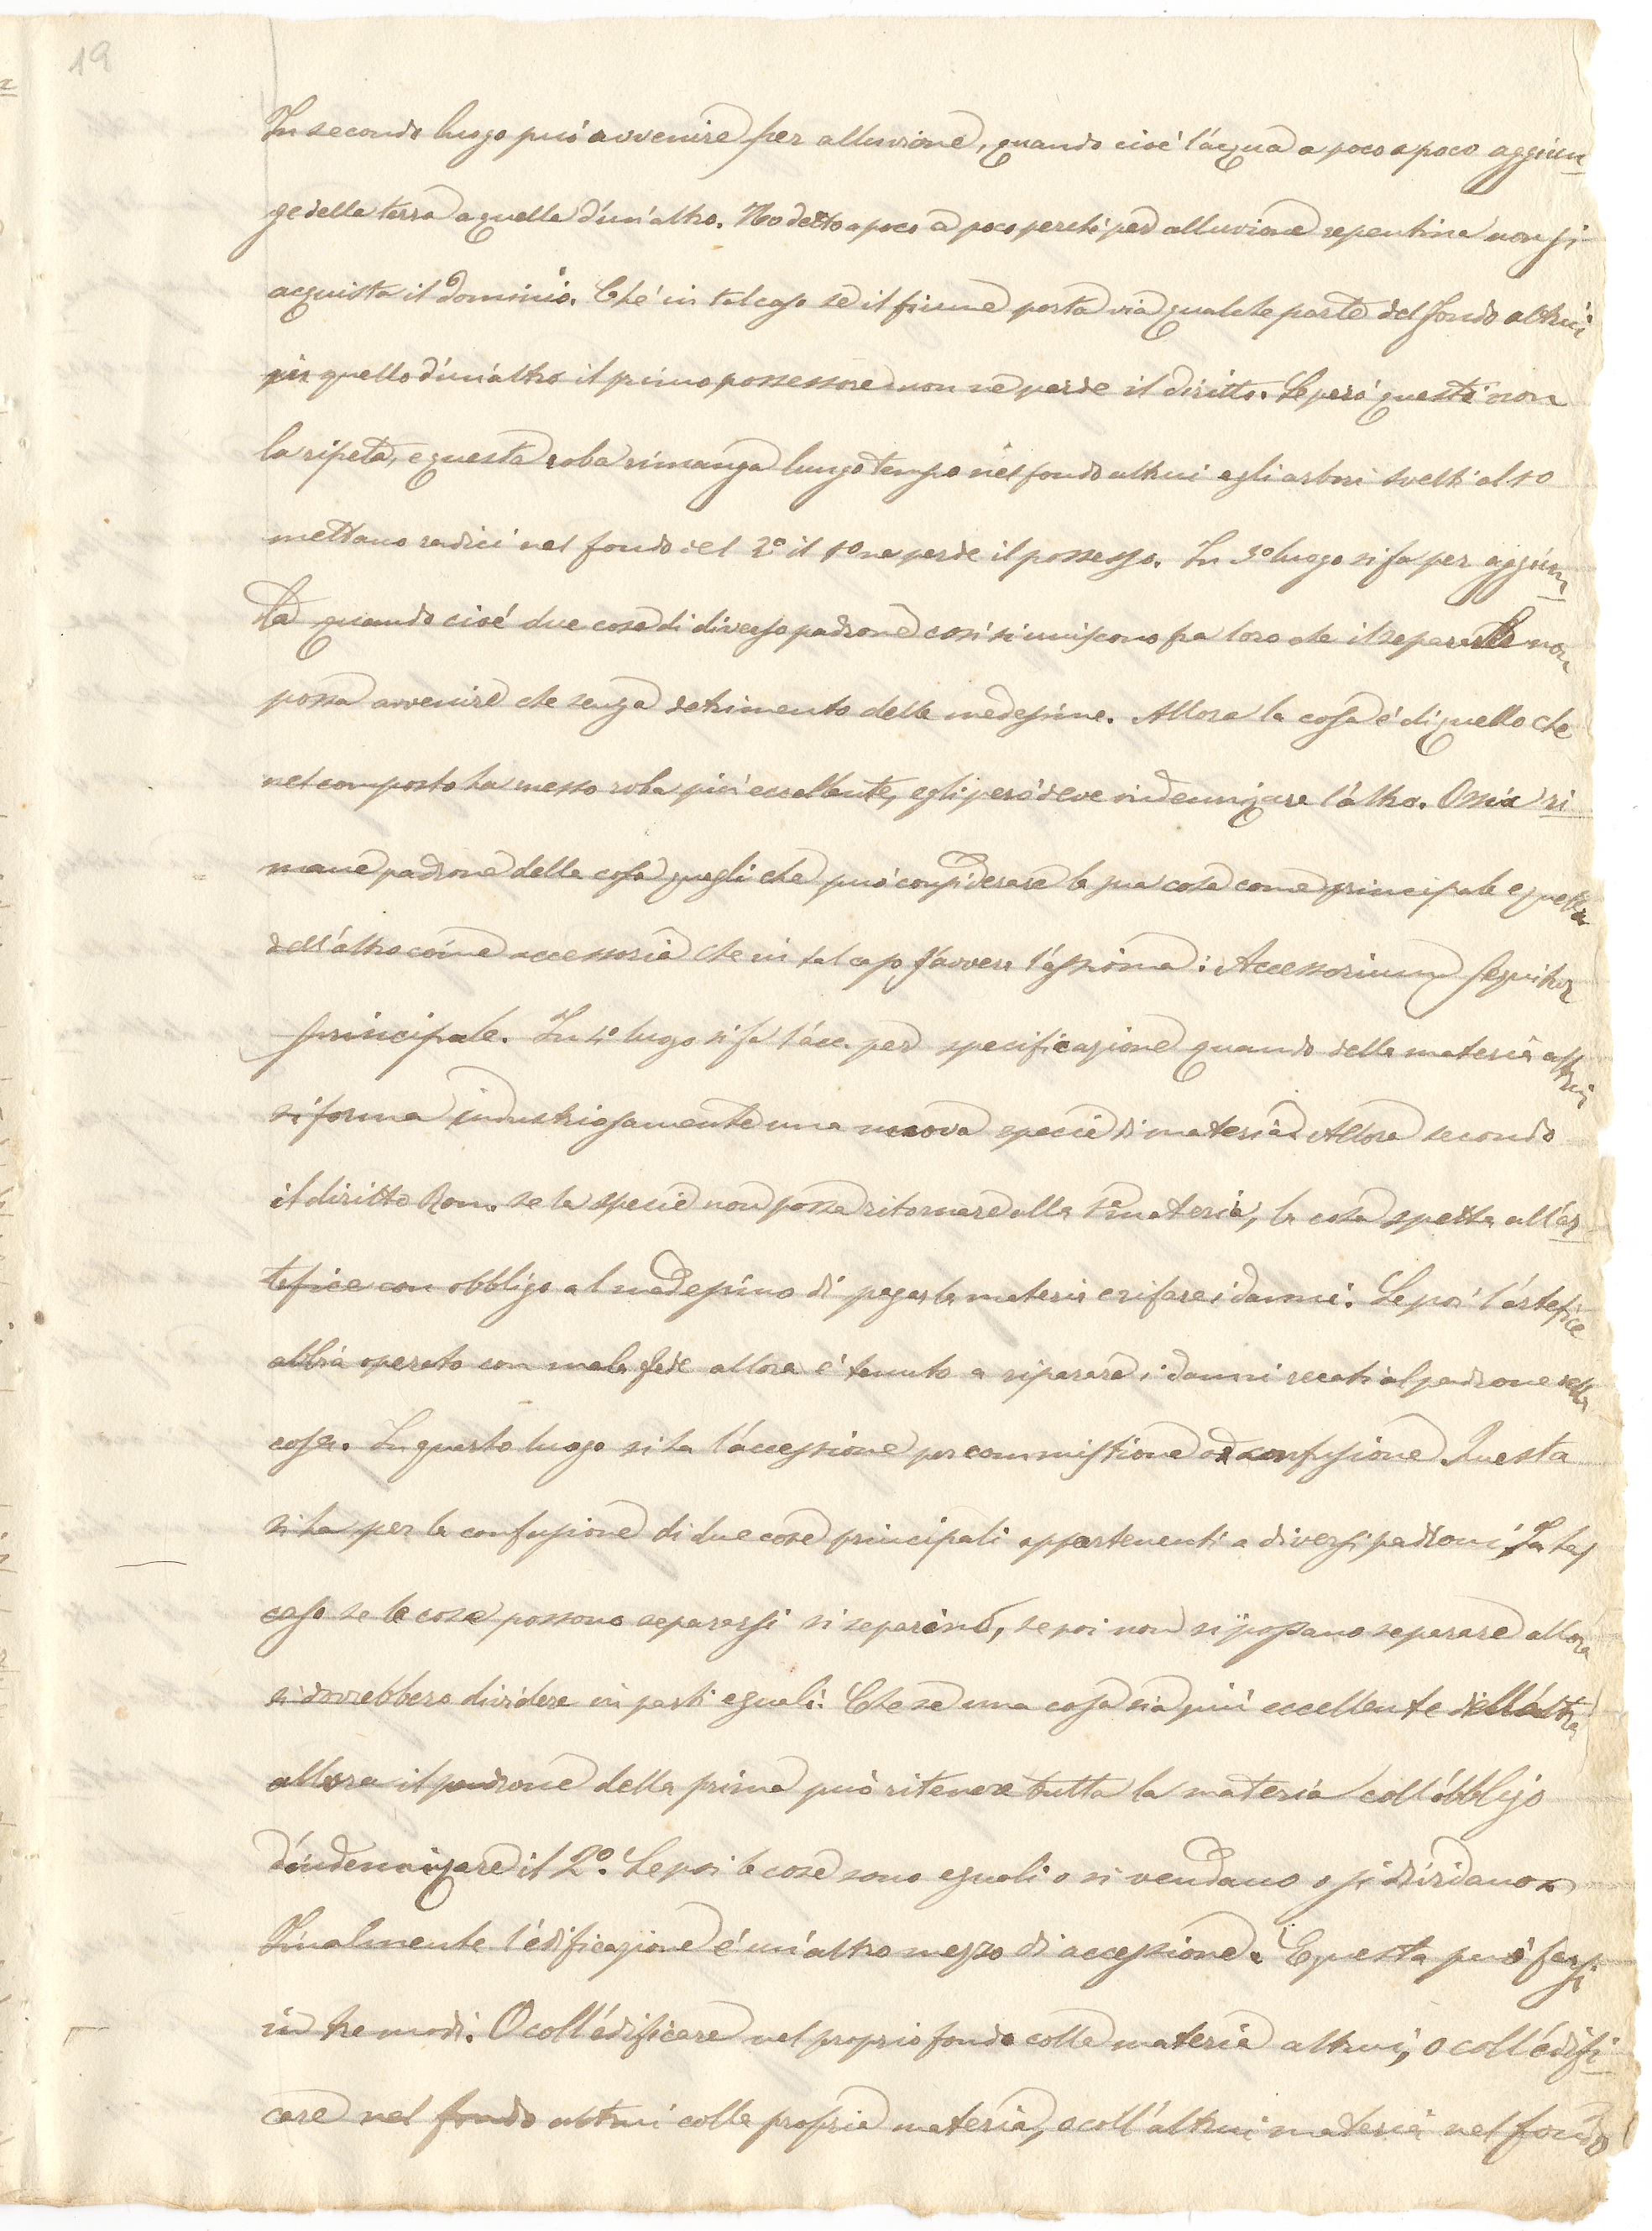 19
In secondo luogo può avvenire per alluvione, quando cioè l'acqua a poco a poco aggiun
ge della terra a quella d'un'altro. Ho detto a poco a poco perchè per alluvione repentina non si
acquista il dominio. Chè in tal caso se il fiume porta via qualche parte del fondo altrui
quello d'un'altro il primo possessore non ne perde il diritto. Se però questi non
la ripeta, e questa roba rimanga lungo tempo nel fondo altrui e gli arbori svelti al 1º
mettano radici nel fondo del 2º il 1º ne perde il possesso. In 3º luogo si fa per aggiun
ta quando cioè due cose di diverso padrone così si uniscono fra loro che il separarle non
possa avvenire che senza detrimento delle medesime. Allora la cosa è di quello che
nel composto ha messo roba più eccellente, egli però deve indennizzare l'altro. Ossia ri
mane padrone della cosa quegli che può considerare la sua cosa come principale e quella
dell'altro come accessoria che in tal caso s'avvera l'assioma: Accessorium sequitur
principale. In 4º luogo si fa l'acc. per specificazione quando della materia altrui
si forma industriosamente una nuova specie di materia. Allora secondo
il diritto Rom. se la specie non possa ritornare alla 1ª materia, la cosa spetta all'ar
tefice con obbligo al medesimo di pagar la materia e rifare i danni. Se poi l'artefice
abbia operato con mala fede allora è tenuto a riparare i danni recati al padrone della
cosa. In questo luogo si ha l'accessione per commistione o confusione. Questa
si ha per la confusione di due cose principali appartenenti a diversi padroni. In tal
caso se le cose possono separarsi si separino, se poi non si possano separare allora
si dovrebbero dividere in parti eguali. Che se una cosa sia più eccellente dell'altra
allora il padrone della prima può ritenere tutta la materia coll'obbligo
d'indennizzare il 2º. Se poi le cose sono eguali o si vendano o si dividano.
Finalmente l'edificazione è un'altro mezzo di accessione. E questa può farsi
in tre modi. O coll'edificare nel proprio fondo colla materia altrui, o coll'edifi
care nel fondo altrui colla propria materia, o coll'altrui materia nel fondo